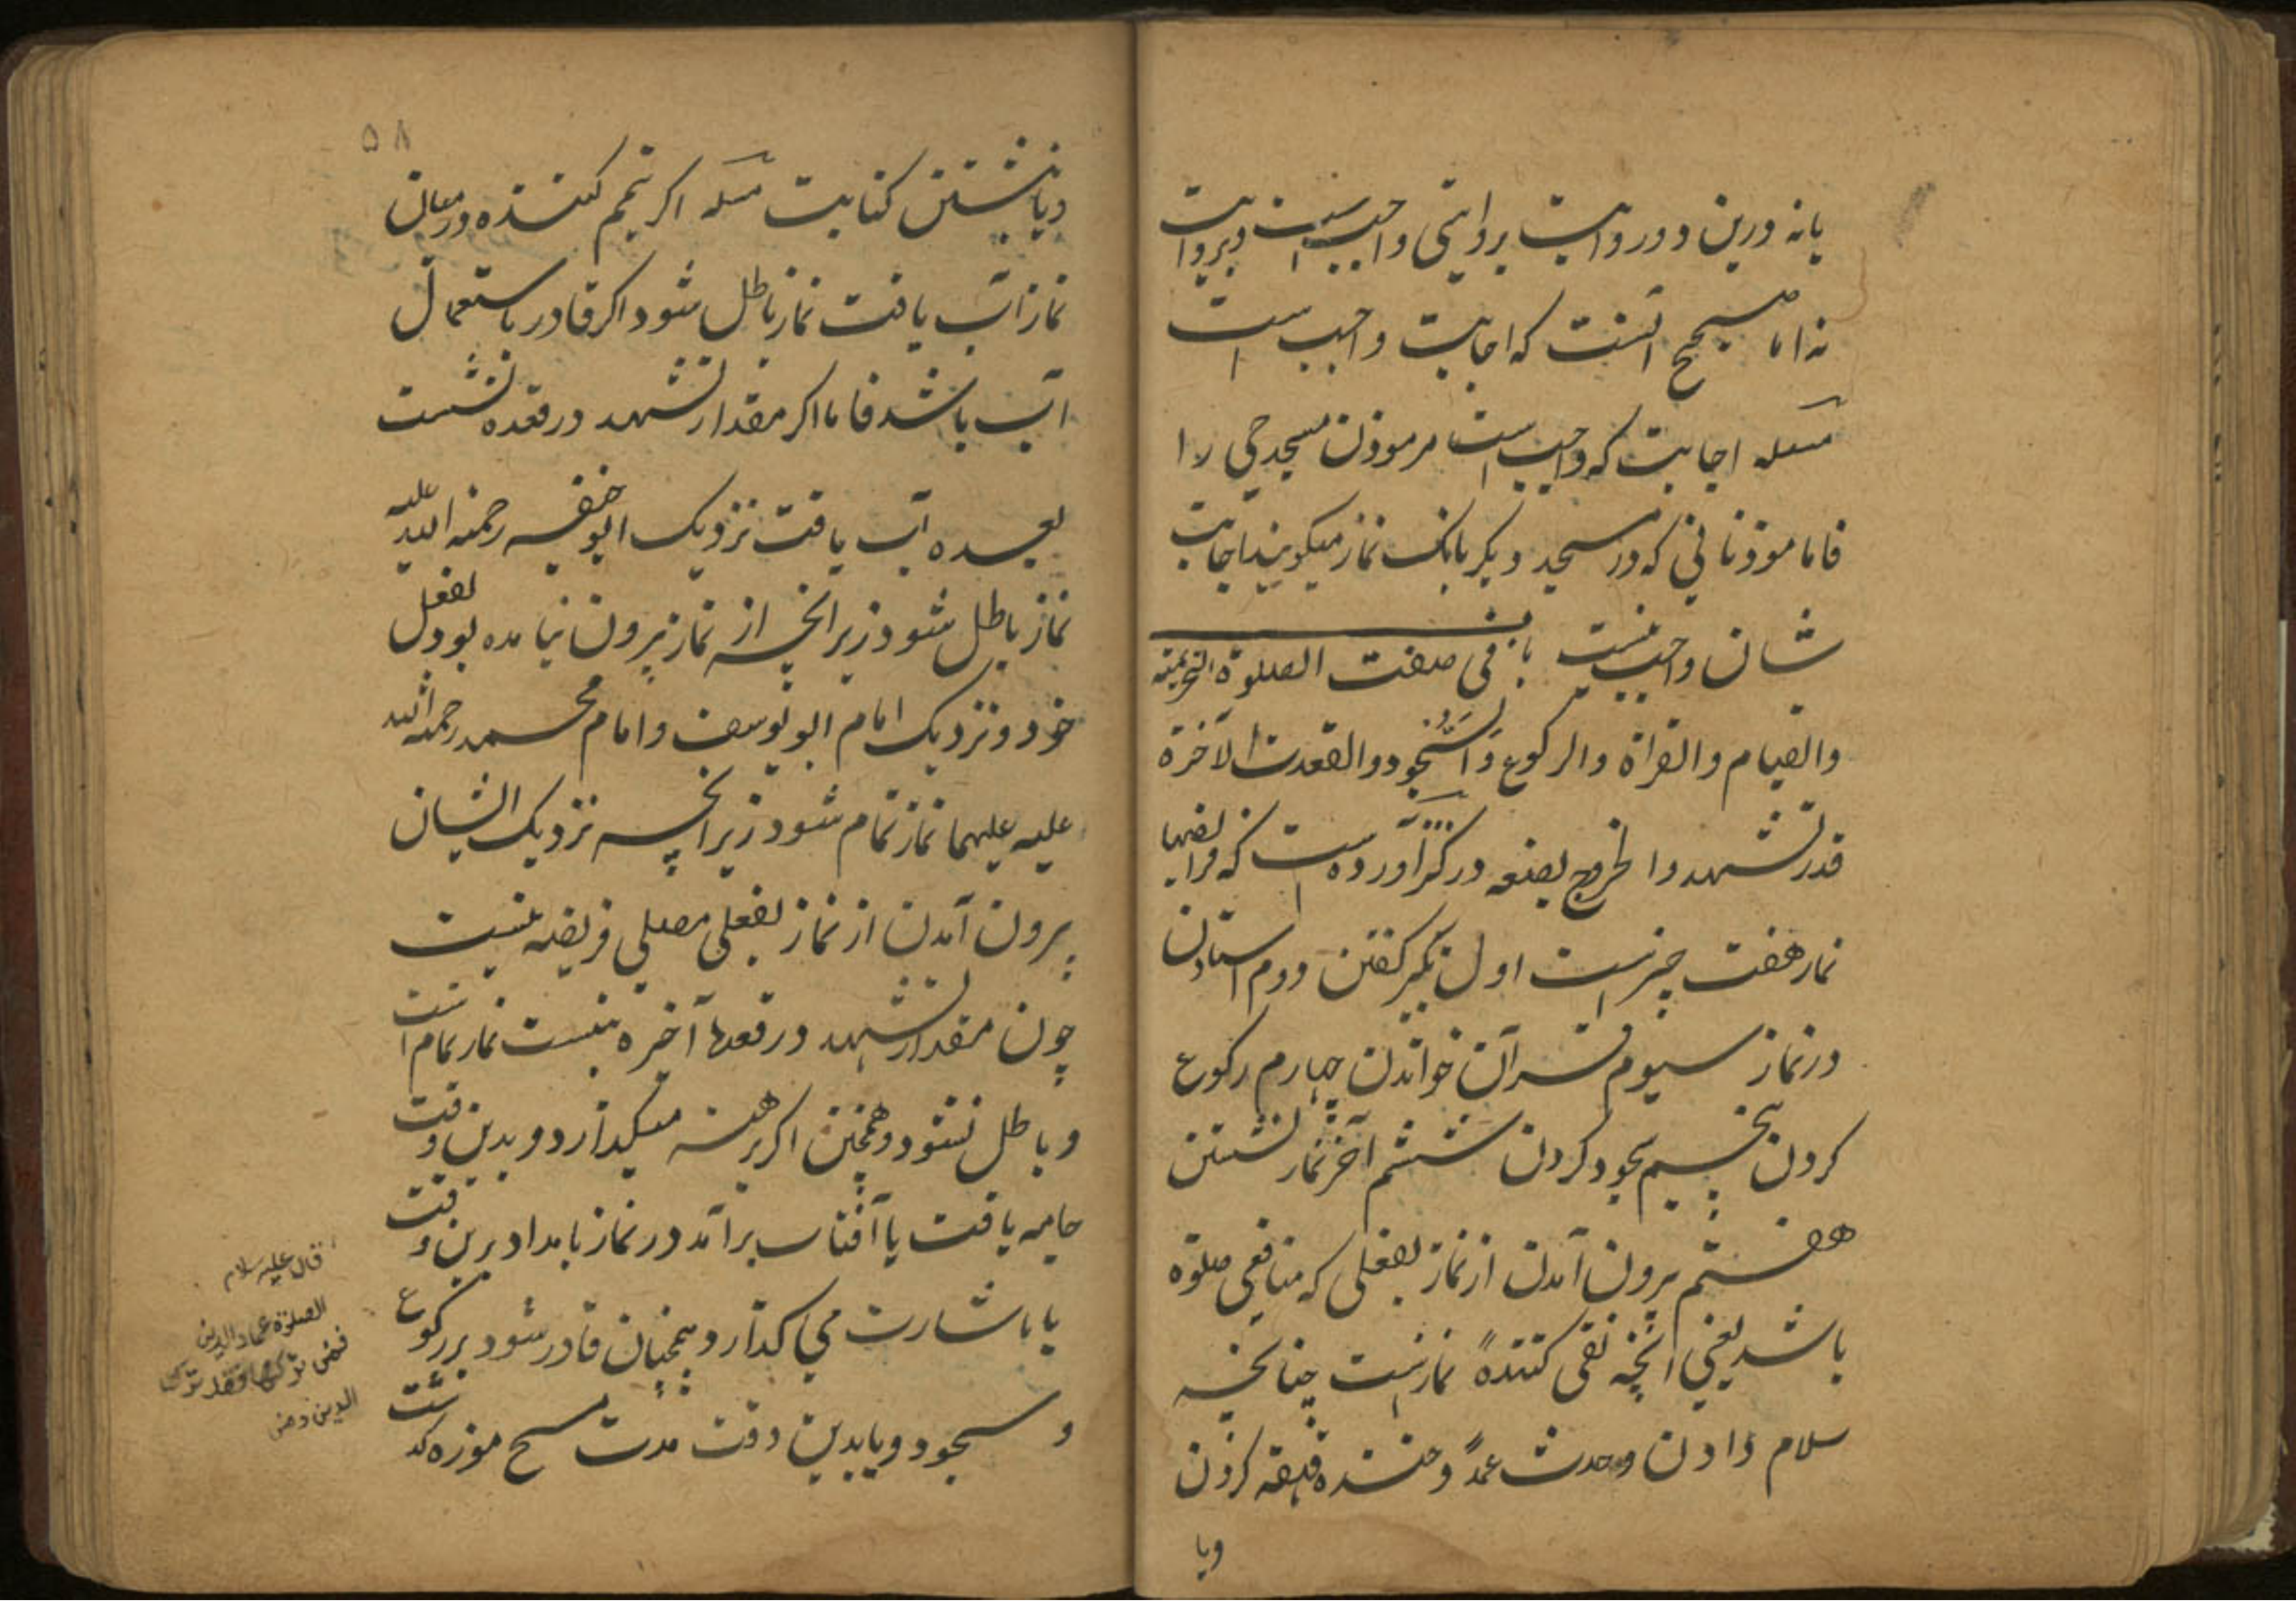 یا نه درین دو روایت بروایتی واجب است و بروایت
نه اما صحیح آنست که اجابت واجب است
مسئله اجابت که واجب است مر موذن مسجد حی را
فاما موذنانی که در مسجد دیکر بانک نماز میکویند اجابت
شان واجب نیست باب فی صفت الصلوة التحریمه
والقیام والقراة والرکوع والسُّجُود والقعدت الآخرة
قدر تشهد والخروج بصنعه در کنز آورده است که فرایضها
نماز هفت چیز است اول تکبیر کفتن دوم استادن
در نماز سیوم قرآن خواندن چهارم رکوع
کردن پنجم سجود کردن ششم آخر نماز نشستن
هفتم بیرون آمدن از نماز بفعلی که منافی صلوة
باشد یعنی آنچه نفی کننده نماز است چنانچه
سلام دادن و حدث عمدً و خنده قهقهه کردن
ویا
۵۸
ویا نشستن کتابت مسله اکر تیمم کننده در میان
نماز آب یافت نماز باطل شود اکر قادر باستعمال
آب باشد فاما اکر مقدار تشهد در قعده نشست
بعده آب یافت نزدیک ابو حنیفه رحمة الله علیه
نماز باطل شود زیرانچه از نماز بیرون نیامده بود بفعل
خود و نزدیک امام ابو یوسف و امام محمد رحمة الله
علیه علیهما نماز تمام شود زیرانچه نزدیک ایشان
بیرون آمدن از نماز بفعلی مصلی فریضه نیست
چون مقدار تشهد در قعدها آخره بنشست نماز تمام است
و باطل نشود و همچنین اکر برهنه میکذارد و بدین وقت
جامه یافت یا آفتاب برآمد در نماز بامداد برین وقت
یا باشارت می کذارد و همچنان قادر شود بر رکوع
و سجود و یا بدین وقت مدت مسح موزه
قال علیه سلام
الصلوة عماد الدین
فمن ترکها فقد ترک
الدین